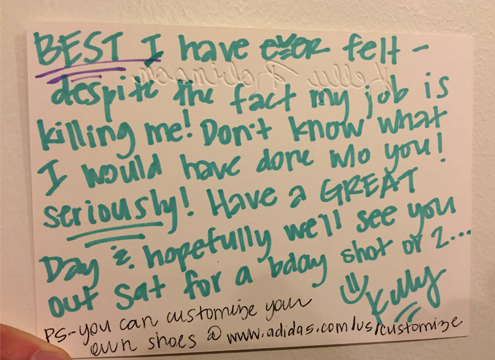 BEST I have ever felt -
despite the fact my job is
killing me! Don't know what
I would have done w/o you!
seriously! Have a GREAT
Day & hopefully we'll see you
out Sat for a bday shot or 2...
Kelly
PS-you can customize your
own shoes @ www.adidas.com/us/customize